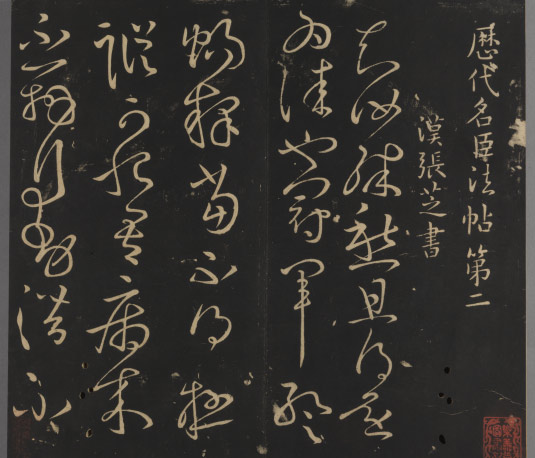 歷代名臣法帖第二
漢張芝書
知汝殊愁且得還
為佳也冠軍暫
暢釋當不得極
蹤可恨吾病來
不辨行動潛不